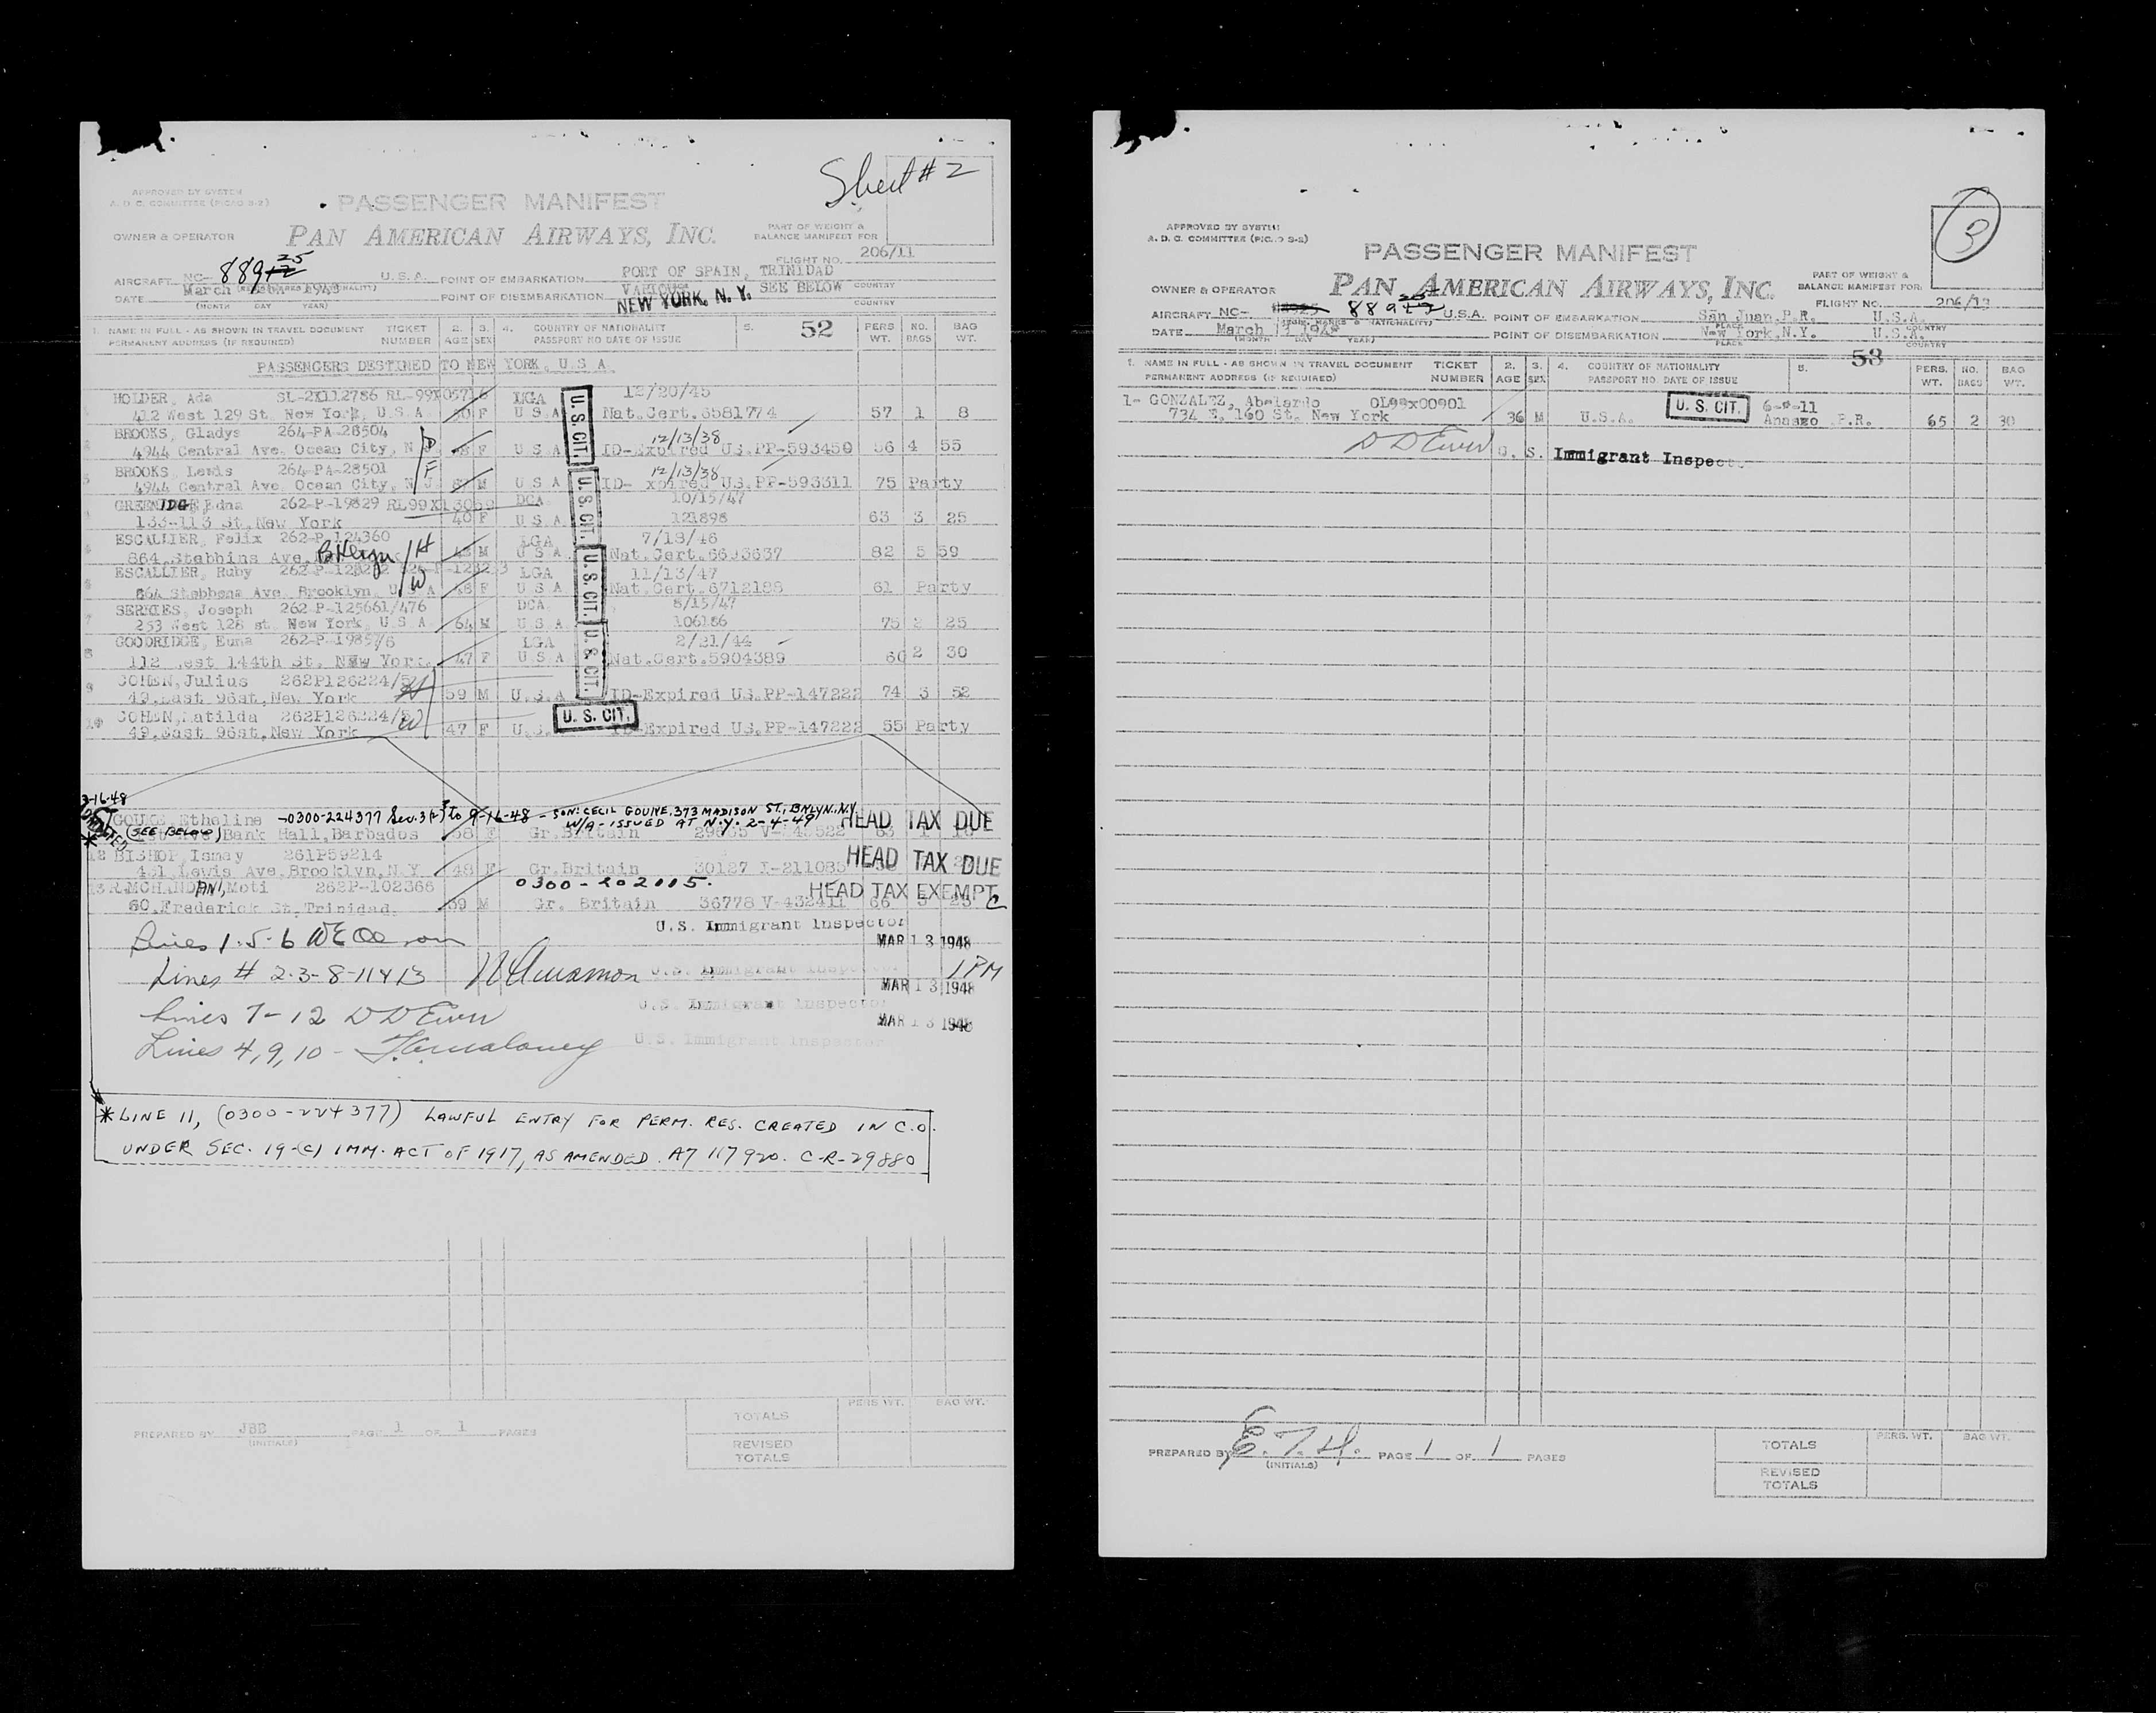 Sheet # 2
APPROVED BY SYSTEM
A. D. C. COMMITTEE (PICAO S-2)
PASSENGER MANIFEST
OWNER & OPERATOR PAN AMERICAN AIRWAYS, INC. PART OF WEIGHT & BALANCE MANIFEST FOR
FLIGHT NO. 206/11
AIRCRAFT NC- 889 25 U.S.A. POINT OF EMBARKATION PORT OF SPAIN, TRINIDAD
DATE March 1948 POINT OF DISEMBARKATION VARIOUS SEE BELOW COUNTRY
(MONTH DAY YEAR) NEW YORK, N. Y. COUNTRY
1. NAME IN FULL - AS SHOWN IN TRAVEL DOCUMENT TICKET 2. 3. 4. COUNTRY OF NATIONALITY 5. 52 PERS NO. BAG
PERMANENT ADDRESS (IF REQUIRED) NUMBER AGE SEX PASSPORT NO DATE OF ISSUE WT. BAGS WT.
PASSENGERS DESTINED TO NEW YORK, U.S.A.
HOLDER, Ada SL-2X112786 RL-99X05716 LGA 12/20/45
412 West 129 St. New York, U.S.A. 50 F U S A U.S. CIT. Nat.Cert.6581774 57 1 8
BROOKS, Gladys 264-PA-28504 12/13/38
4944 Central Ave. Ocean City, N J F U S A ID-Expired US.PP-593450 56 4 55
BROOKS, Lewis 264-PA-28501 12/13/38
4944 Central Ave. Ocean City, N J. 67 M U S A U.S. CIT. ID- xpired US.PP-593311 75 Party
GREENIDGE, Edna 262-P-19829 RL99X13059 DCA 10/15/47
133-113 St. New York 40 F U S A 121898 63 3 25
ESCALLIER, Felix 262-P-124360 LGA 7/18/46
864 Stebbins Ave, Bklyn H M U S A U.S. CIT. Nat.Cert.6693637 82 5 59
ESCALLIER, Ruby LGA 11/13/47
864 Stebbens Ave. Brooklyn, U S A W F U S A Nat.Cert.6712188 61 Party
Joseph 262-P-125661/476 DCA 8/15/47
253 West 128 st. New York, U S A 64 M U S A 106186 75 2 25
GOODRIDGE, Euna 262-P-19857/6 LGA 2/21/44
112 West 144th St. New York. 47 F U S A U.S. CIT. Nat.Cert.5904389 60 2 30
COHEN, Julius 262P126224/5
49, East 96st, New York H 59 M U.S.A ID-Expired US.PP-147222 74 3 52
COHEN, Matilda 262P126224/5 U. S. CIT.
49, East 96st, New York W 47 F U.S. ID-Expired US.PP-147222 55 Party
3-16-48
GOURE, Etheline -0300-224377 Sec. 3(2) to 9-16-48 - SON: CECIL GOURE, 373 MADISON ST., BKLYN. N.Y.
W/a - ISSUED AT N.Y. 2-4-49 HEAD TAX DUE
(SEE BELOW) Bank Hall, Barbados 58 F Gr. Britain
12 BISHOP, Ismay 261P59214 HEAD TAX DUE
Lewis Ave, Brooklyn, N Y 48 F Gr.Britain 30127 I-211085
13 RAMCHANDANI, Moti 262P-102366 0300-202115. HEAD TAX EXEMPT C
60, Frederick St, Trinidad. 39 M Gr. Britain 36778 V-432411 66 3 23
Lines 1.5.6 U.S. Immigrant Inspector
MAR 13 1948
Lines # 2-3-8-11 & 13 U.S. Immigrant Inspector 1 PM
MAR 13 1948
Lines 7-12 D D Ewen U.S. Immigrant Inspector
MAR 13 1948
Lines 4, 9, 10 - U.S. Immigrant Inspector
*LINE 11, (0300-224377) LAWFUL ENTRY FOR PERM. RES. CREATED IN C.O.
UNDER SEC. 19-(C) IMM. ACT OF 1917, AS AMENDED. A7 117920. C-R-29880
PREPARED BY JBB PAGE 1 OF 1 PAGES
(INITIALS)
TOTALS PERS WT. BAG WT.
REVISED TOTALS
3
APPROVED BY SYSTEM
A. D. C. COMMITTEE (PICAO S-2)
PASSENGER MANIFEST
OWNER & OPERATOR PAN AMERICAN AIRWAYS, INC. PART OF WEIGHT & BALANCE MANIFEST FOR
FLIGHT NO. 206/13
AIRCRAFT NC- 889 25 U.S.A. POINT OF EMBARKATION San Juan, P.R. U.S.A.
DATE March 1948 POINT OF DISEMBARKATION New York, N.Y. U.S.A.
(MONTH DAY YEAR) PLACE COUNTRY
53
1. NAME IN FULL - AS SHOWN IN TRAVEL DOCUMENT TICKET 2. 3. 4. COUNTRY OF NATIONALITY 5. PERS. NO. BAG
PERMANENT ADDRESS (IF REQUIRED) NUMBER AGE SEX PASSPORT NO. DATE OF ISSUE WT. BAGS WT.
1- GONZALEZ, Abelardo OL99x00901 U. S. CIT. 6- -11
734 E, 160 St. New York 36 M U.S.A. Anasco P.R. 65 2 30
D D Ewen U. S. Immigrant Inspector
PREPARED BY E.T.H. PAGE 1 OF 1 PAGES
(INITIALS)
TOTALS PERS. WT. BAG WT.
REVISED TOTALS